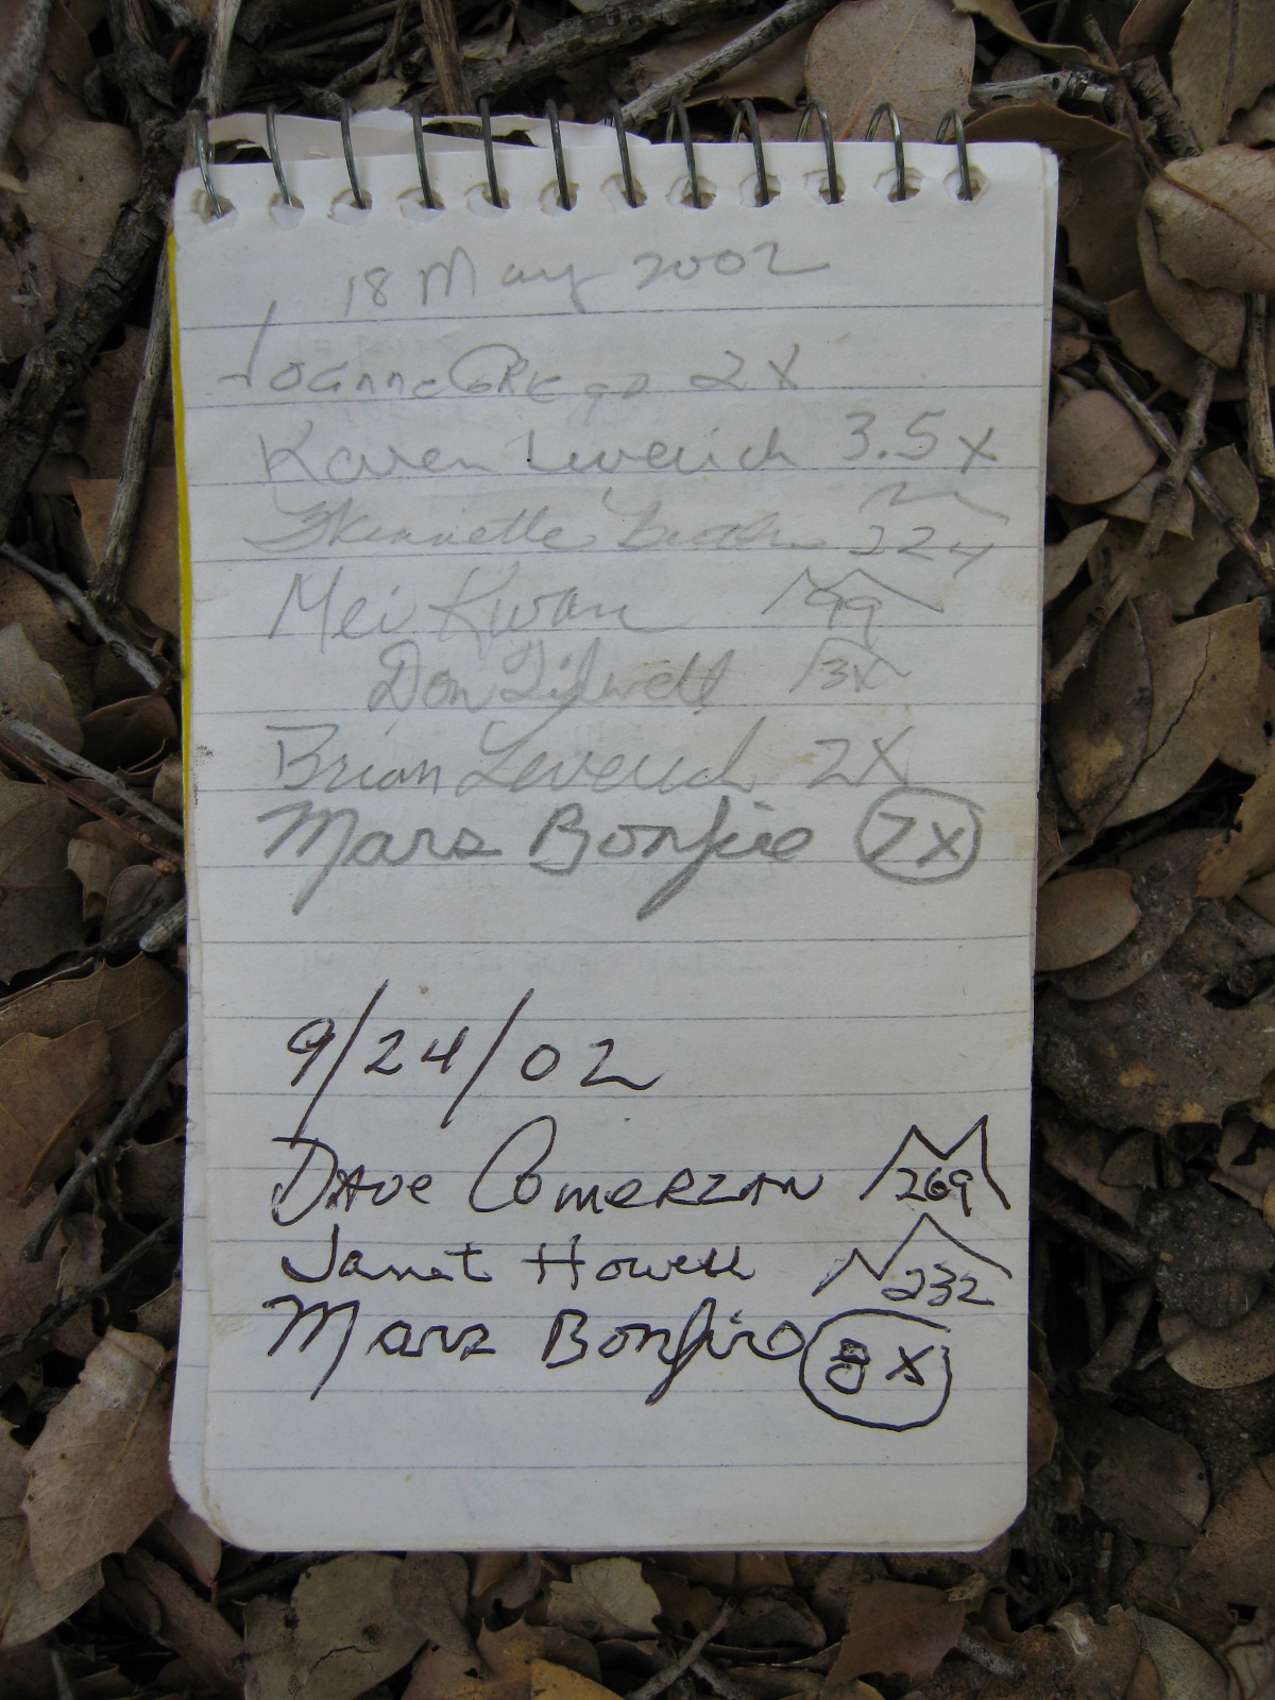 18 May 2002
Joanne Griego 2X
Karen Leverich 3.5X
224
Mei Kwan 99
Don Tidwell 3X
Brian Leverich 2X
Mars Bonfire 7X
9/24/02
Dave Comerzan 269
Janet Howell 232
Mars Bonfire 8X